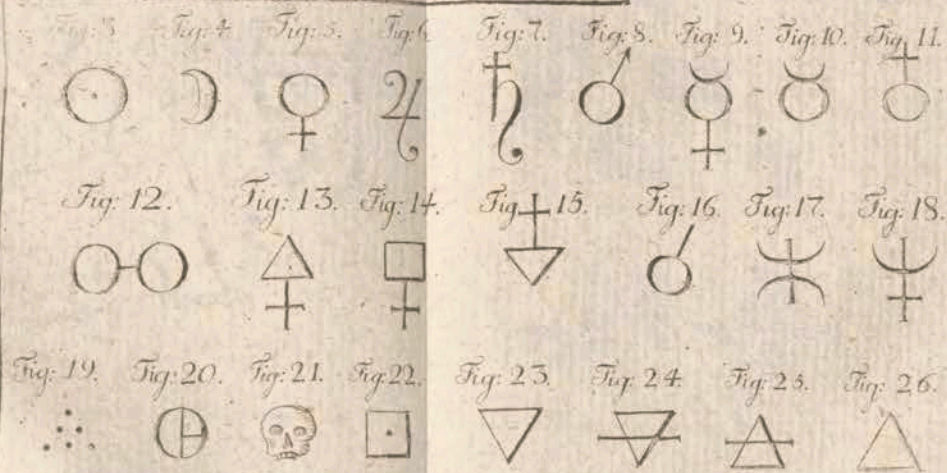 Fig: 3 Fig: 4 Fig: 5. Fig: 6 Fig: 7. Fig: 8. Fig: 9. Fig: 10. Fig. 11.
Fig: 12. Fig: 13. Fig: 14. Fig 15. Fig: 16. Fig: 17. Fig: 18.
Fig: 19. Fig: 20. Fig: 21. Fig: 22. Fig: 23. Fig: 24. Fig: 25. Fig: 26.